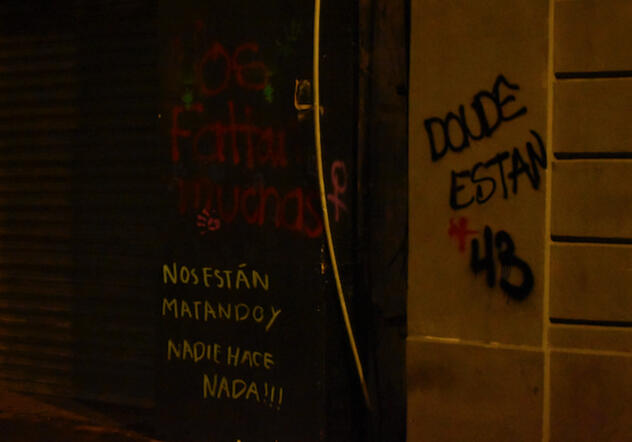 Nos
Faltan
muchas
NOS ESTÁN
MATANDO Y
NADIE HACE
NADA!!!
DONDE
ESTAN
43